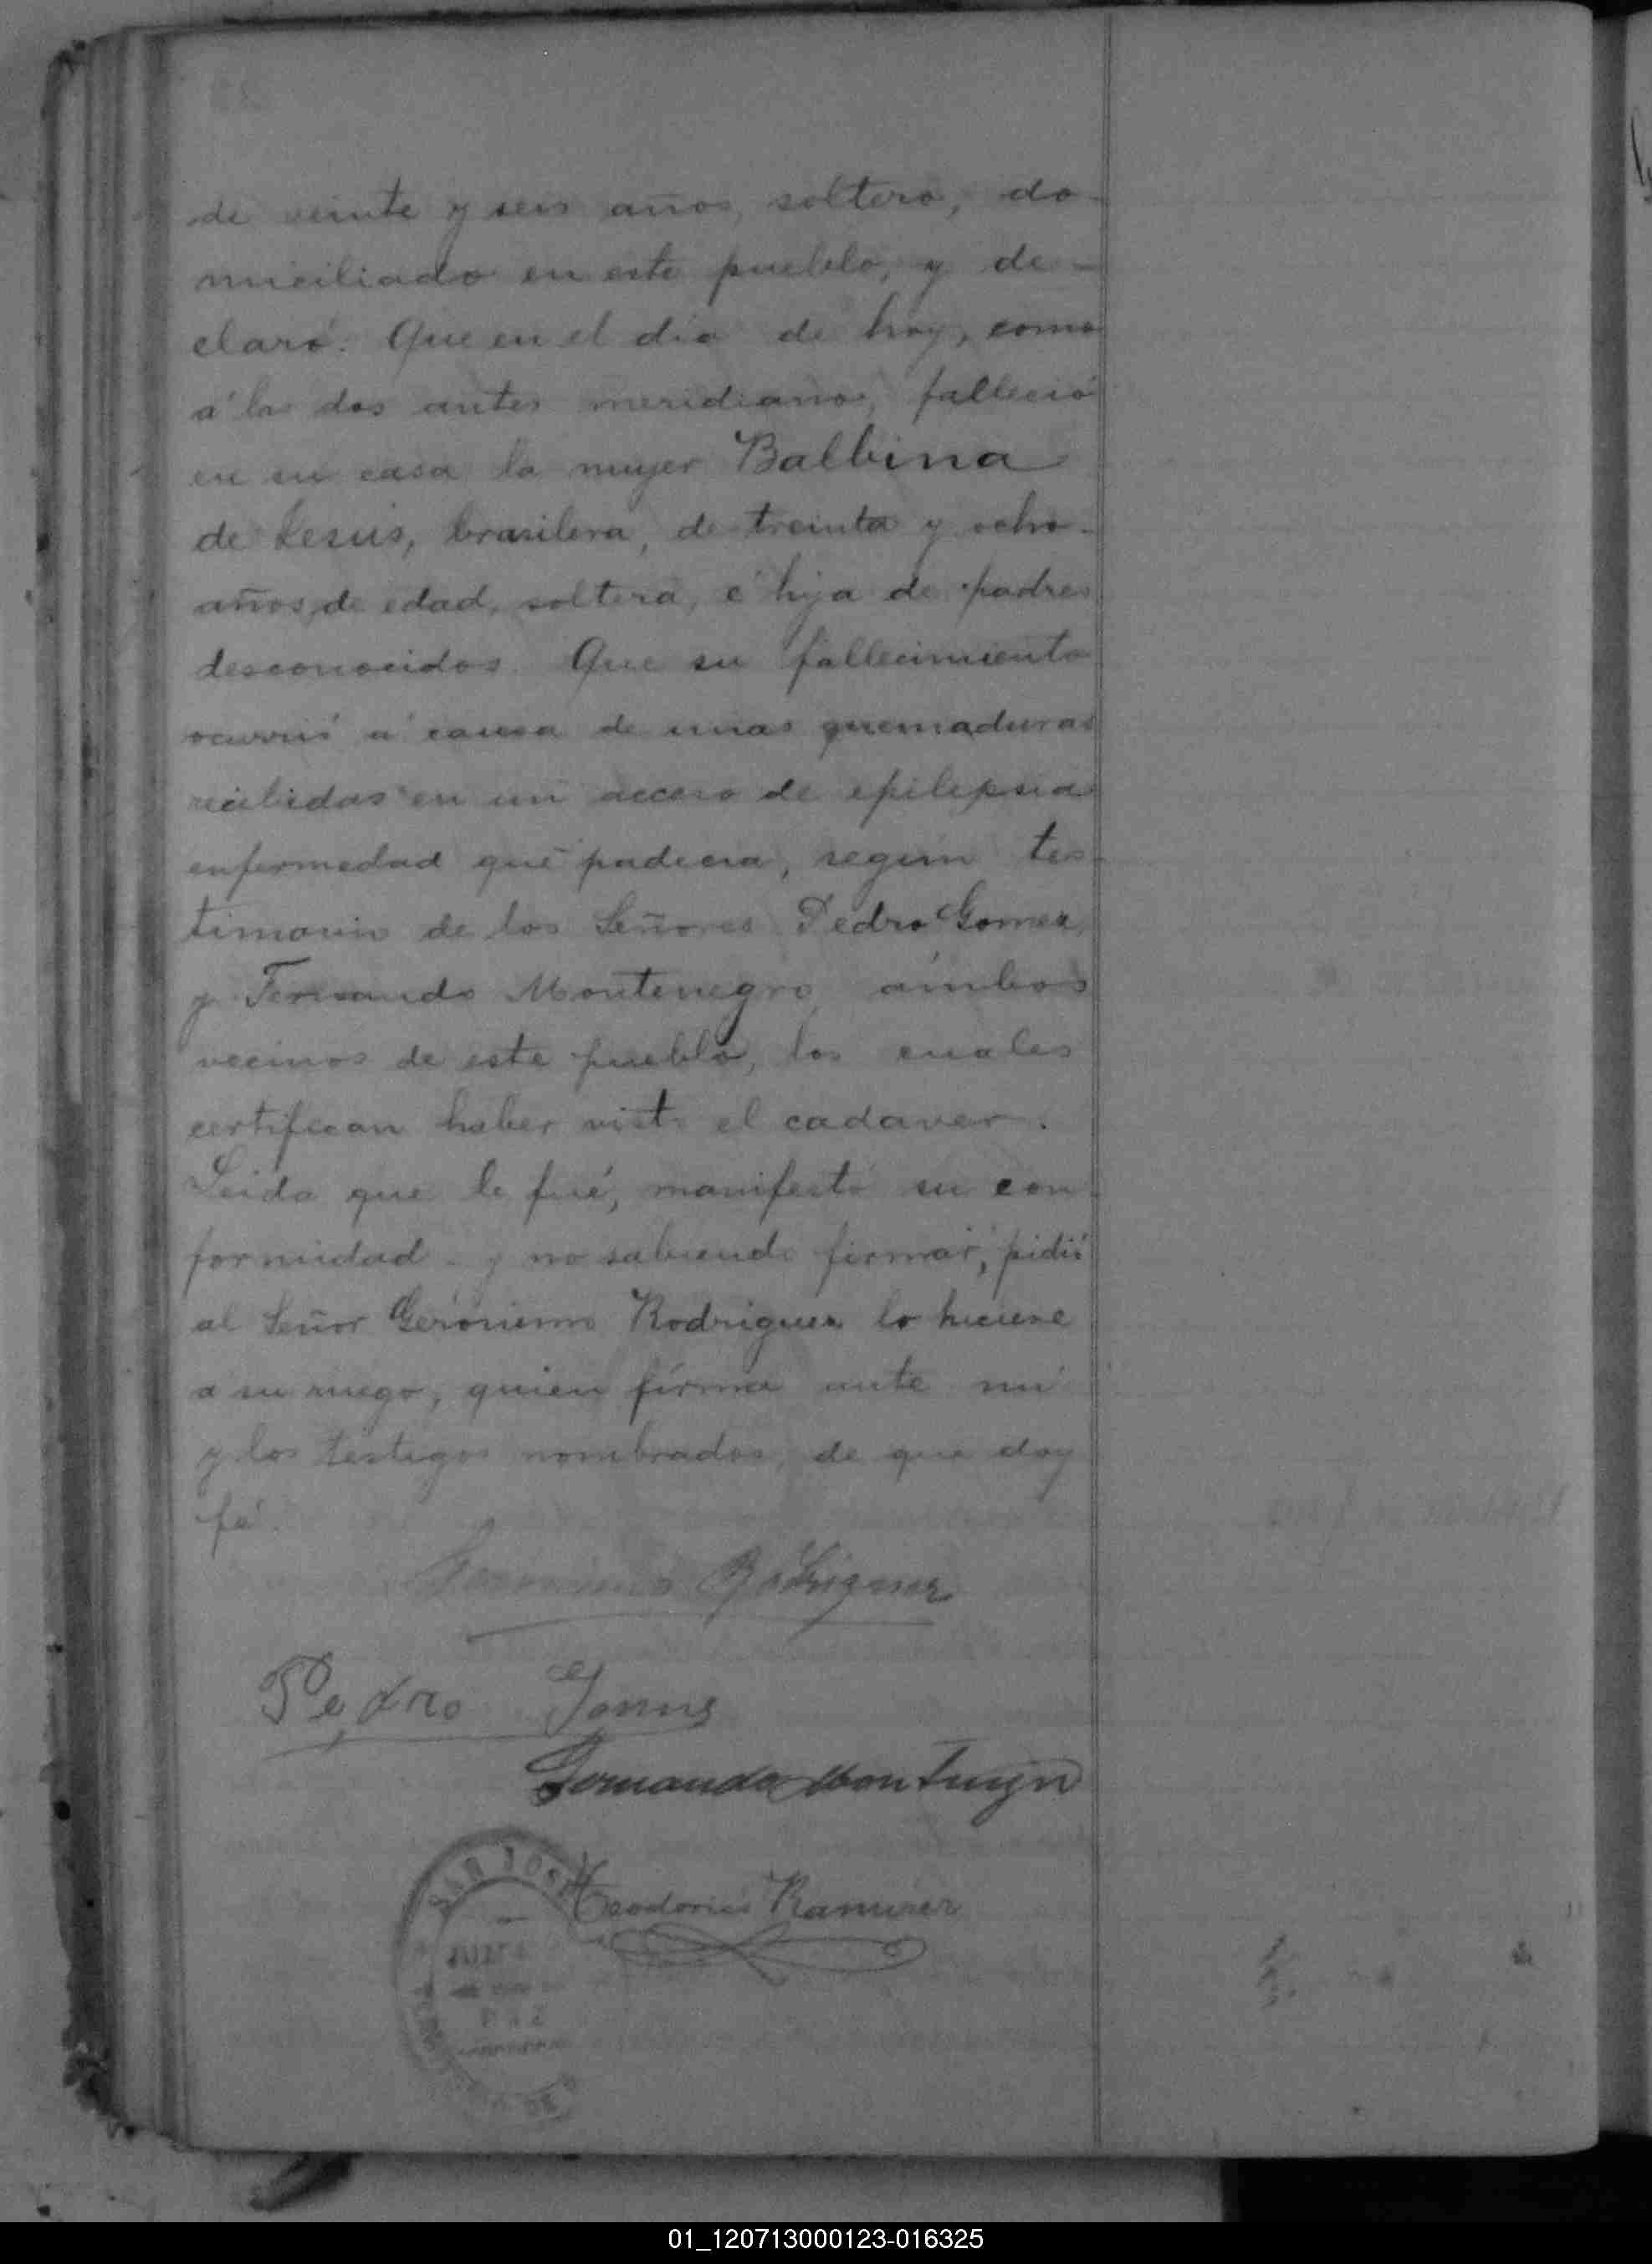 de veinte y seis años, soltero, do-
miciliado en este pueblo, y de-
claró: Que en el dia de hoy, como
a' las dos antes meridiano, falleció
en su casa la mujer Balbina
de Jesus, brasilera, de treinta y ocho
años, de edad, soltera, é hija de padres
desconocidos. Que su fallecimiento
ocurrió a' causa de unas quemaduras
recibidas en un acceso de epilepsia
enfermedad que padecia, segun tes-
timonio de los Señores Pedro Gomez
y Fernando Montenegro, ambos
vecinos de este pueblo, los cuales
certifican haber visto el cadaver.
Leida que le fué, manifestó su con-
formidad y no sabiendo firmar, pidió
al Señor Gerónimo Rodriguez lo hiciese
a su ruego, quien firma ante mi
y los testigos nombrados, de que doy
fé.
Geronimo Rodriguez
Pedro Gomes
Fernando Montenegro
SAN JOSE
Teodorico Ramirez
JUZGADO
PAZ
01_120713000123-016325